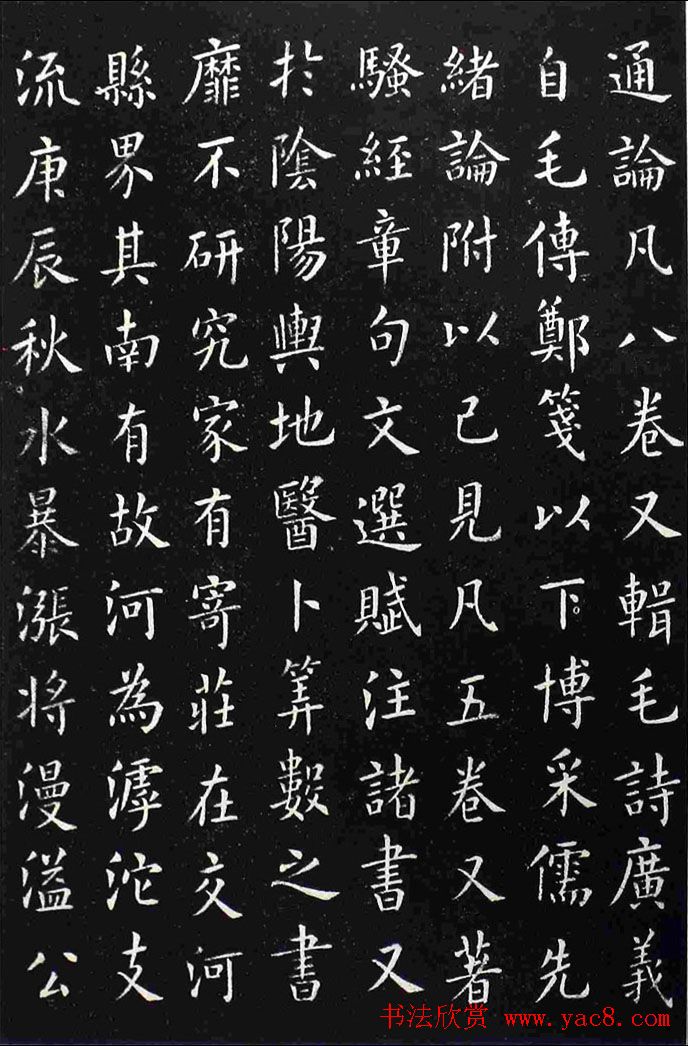 通論凡八卷又輯毛詩廣義
自毛傳鄭箋以下博采儒先
緒論附以己見凡五卷又著
騷經章句文選賦注諸書又
於陰陽輿地醫卜筭數之書
靡不研究家有寄莊在交河
縣界其南有故河為滹沱支
流庚辰秋水暴漲将漫溢公
书法欣赏 www.yac8.com